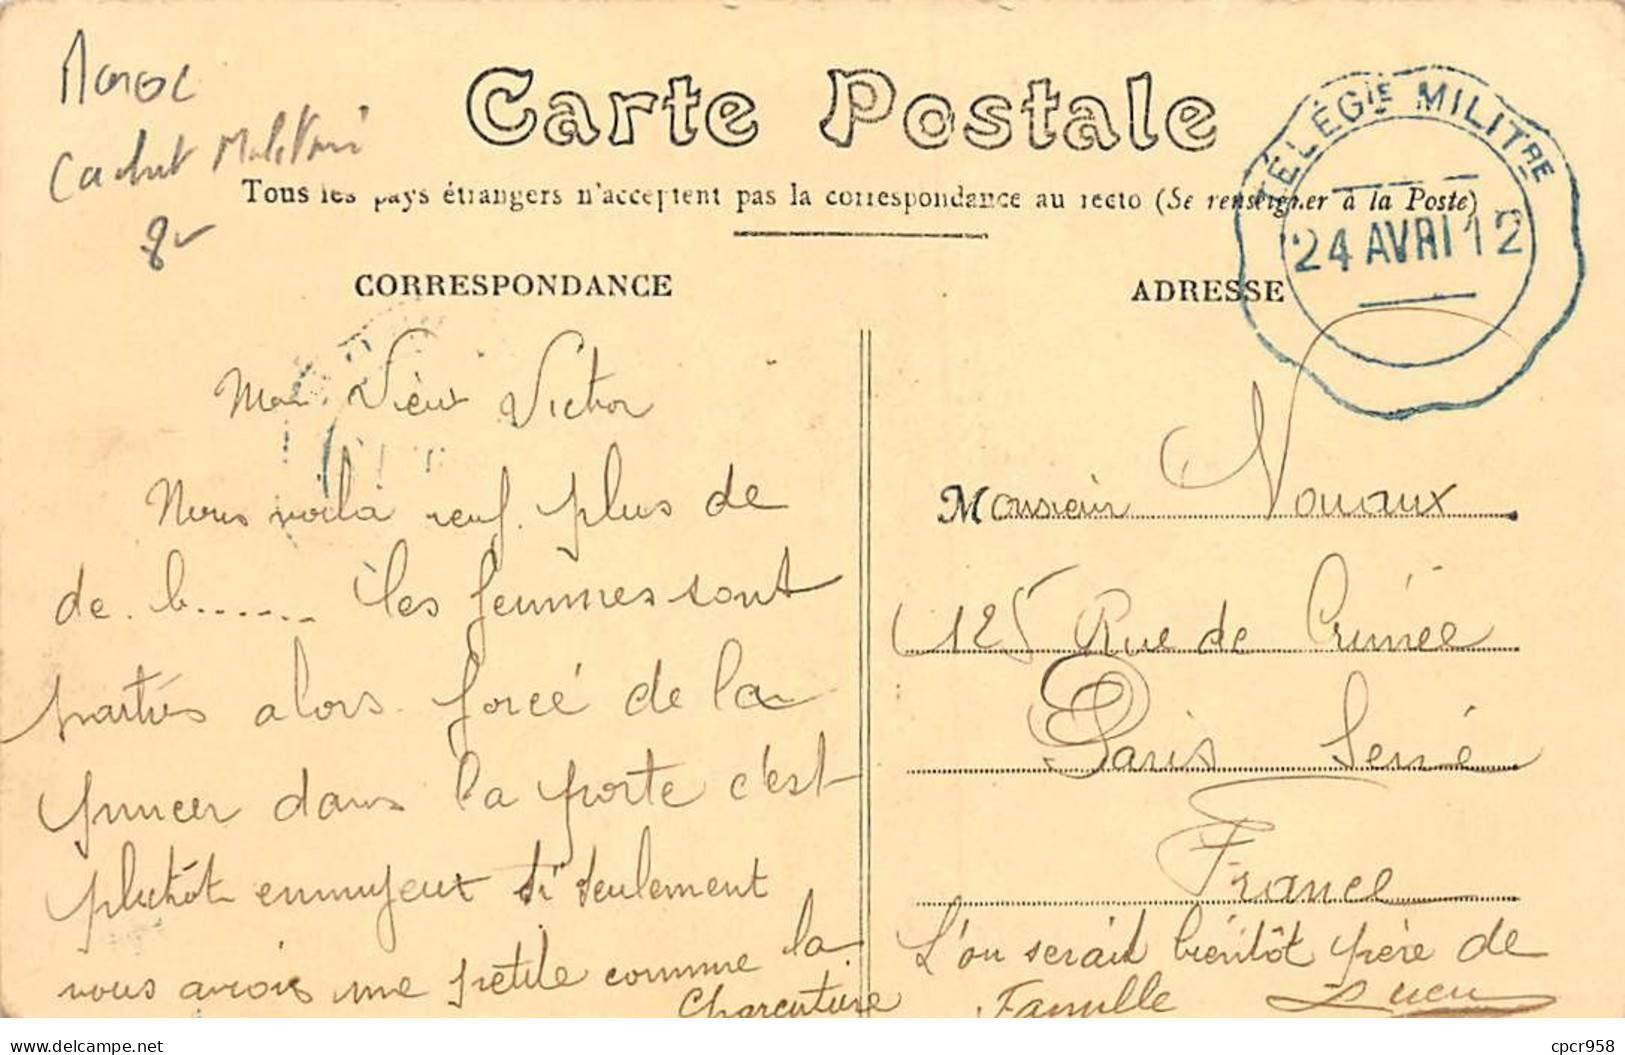 Maroc
Cachet Militaire
8
Carte Postale
Tous les pays étrangers n'acceptent pas la correspondance au recto (Se renseigner à la Poste)
TÉLÉGIE MILITRE
24 AVRI 12
CORRESPONDANCE
ADRESSE
Mon Vieux Victor
Nous voilà neuf. plus de
de. b...... les femmes sont
parties alors forcé de la
pincer dans la porte c'est
plutôt ennuyeux si seulement
nous avions une petite comme la
Charcutière
Monsieur Nouaux
125 Rue de Crimée
Paris Seine
France
L'on serait bientôt père de
Famille
www.delcampe.net
cpcr958